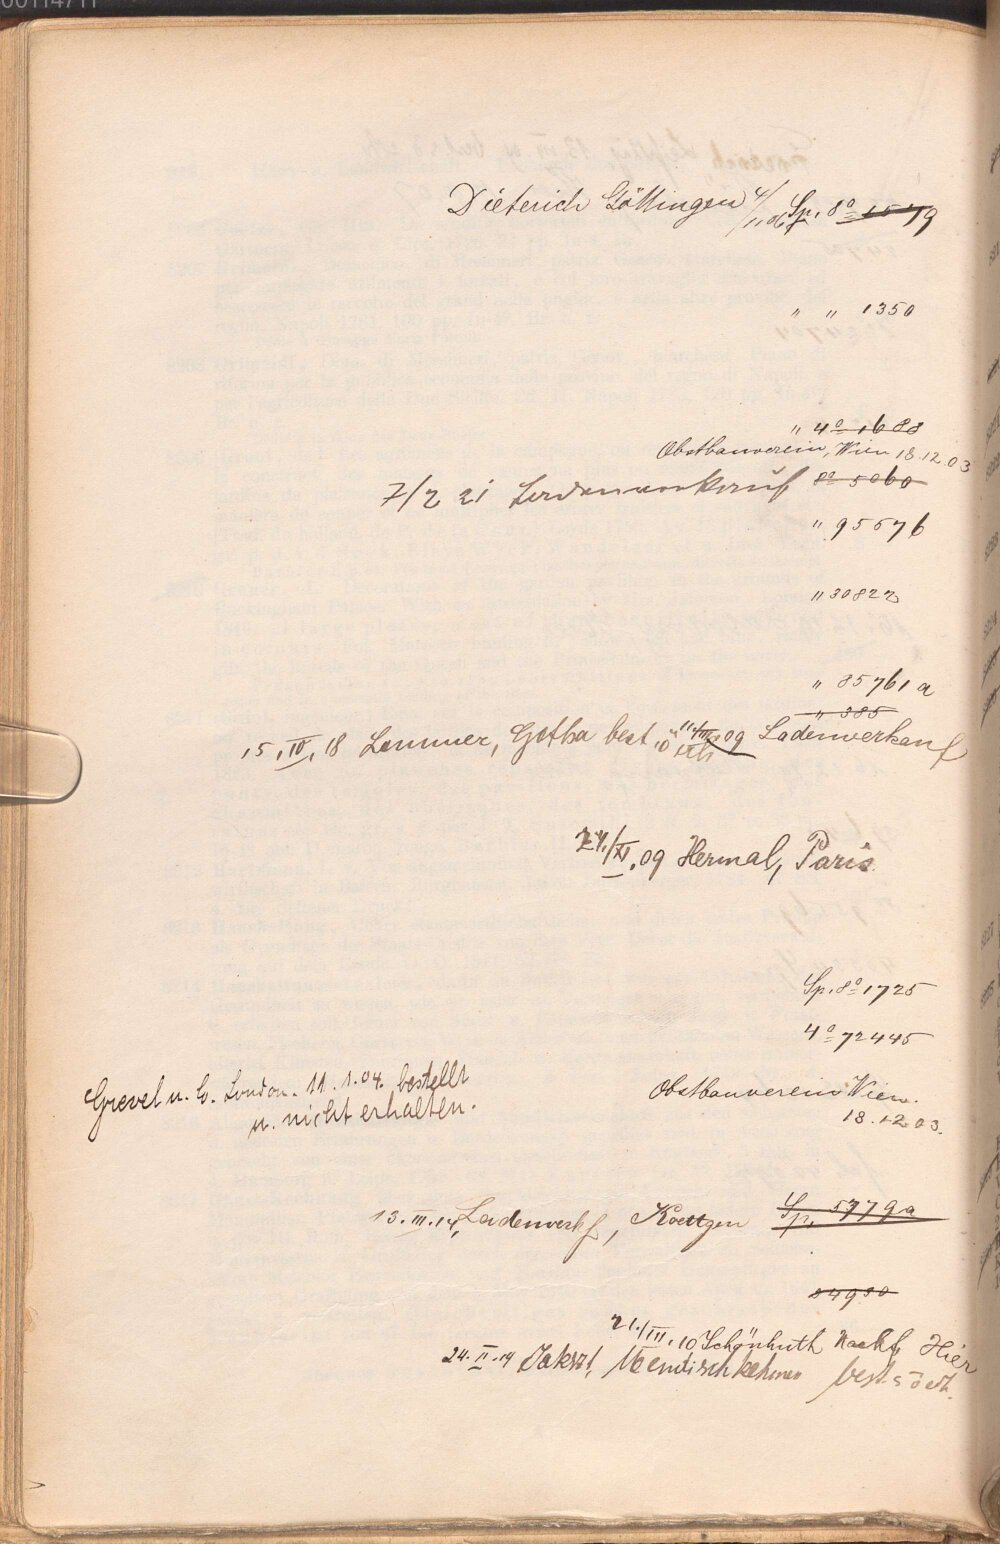 Dieterich Göttingen 4/11 06 Sp. 8º 1579
" " 1350
" 4º 1688
Obstbauverein, Wien 18.12.03
7/2 21 Ladenverkauf 8º 5060
" 95676
" 30822
" 85761 a
" 385
15. IV. 18 Lemmer, Gotha best 09 Ladenverkauf
24./XI. 09 Hermal, Paris.
Sp. 8º 1725
4º 72445
Grevel u. Co. London. 11.1.04. bestellt
u. nicht erhalten.
Obstbauverein Wien.
18.12.03.
13. III. 14, Ladenverkf, Koettgen Sp. 5779a
84930
21./III. 10 Schönhuth Nachf, Hier
24. II. 14 best s ō erh.